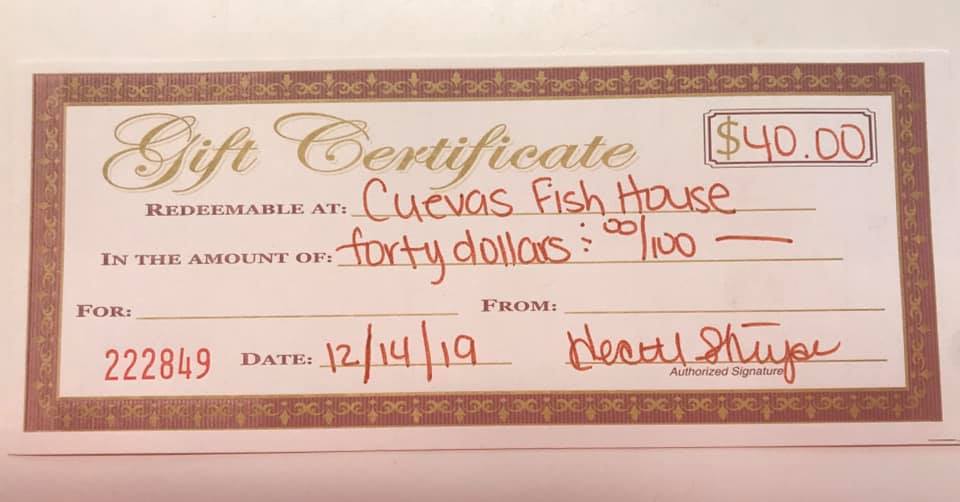 Gift Certificate
$40.00
REDEEMABLE AT: Cuevas Fish House
IN THE AMOUNT OF: forty dollars : 00/100 —
FOR:
FROM:
222849 DATE: 12/14/19
Authorized Signature